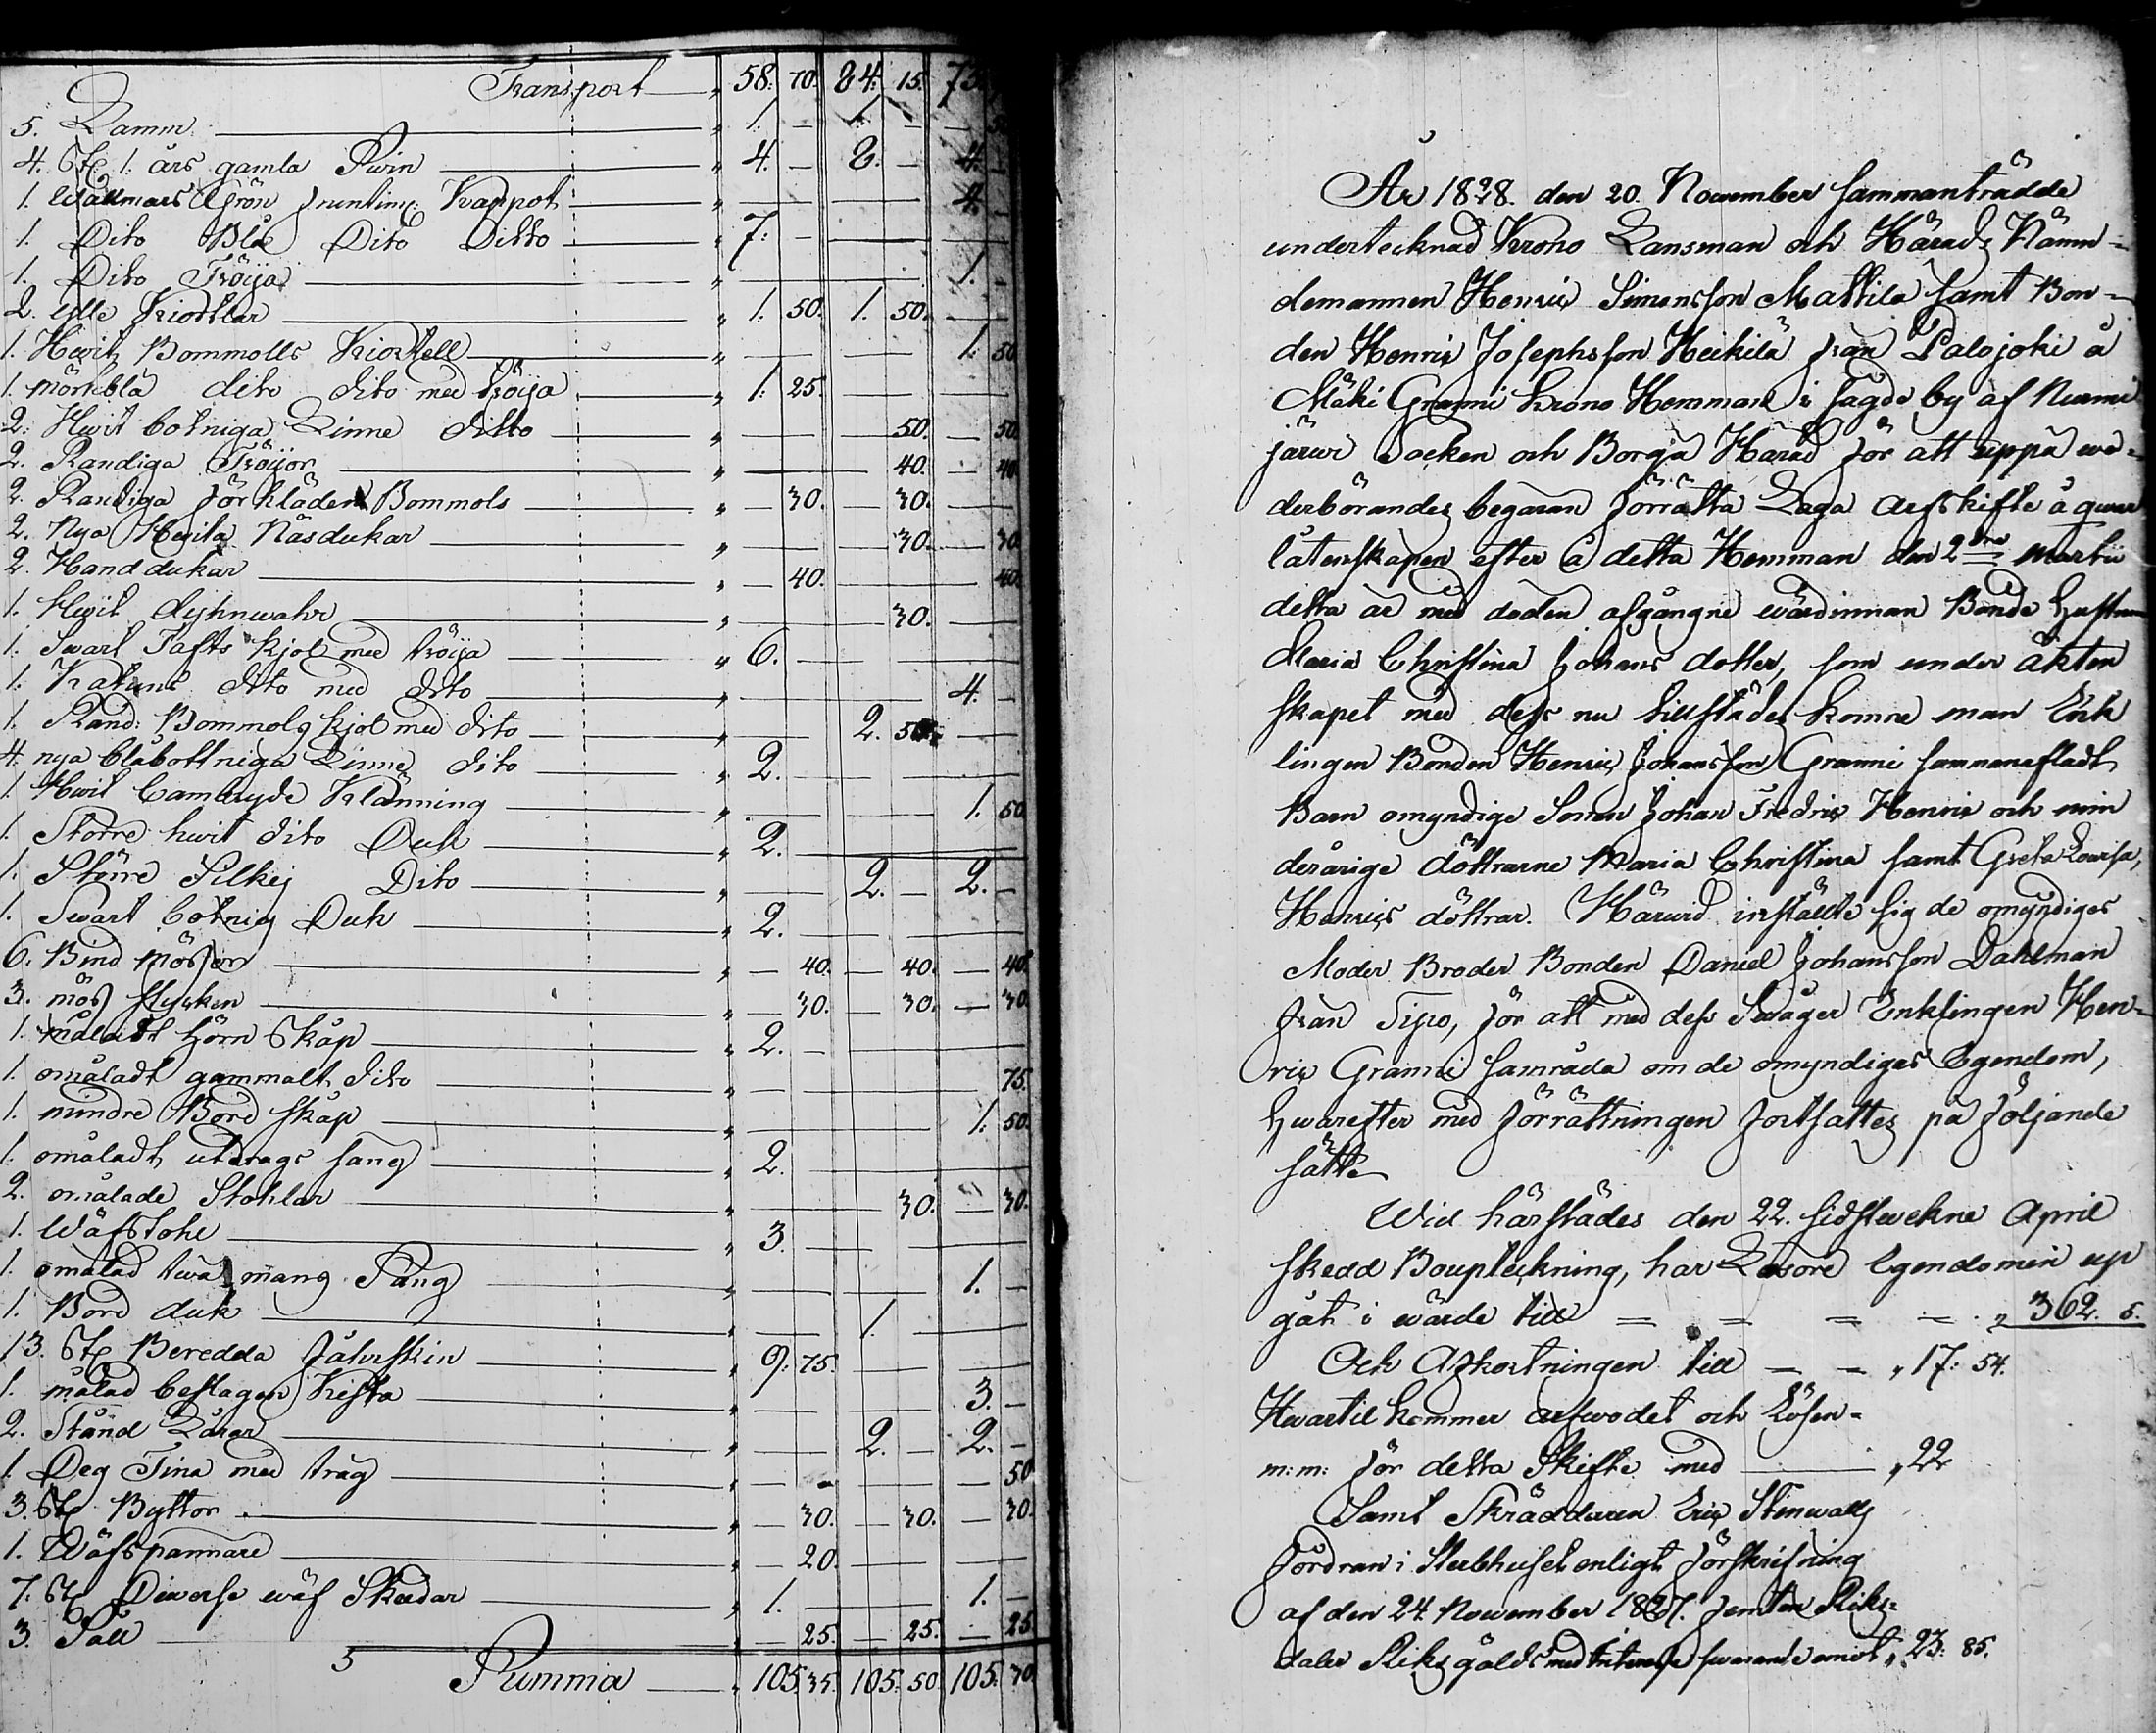 Transport 58: 70. 84. 15. 73
5. Lamm 1. — 1. — — 50
4. St: 1. års gamla Swin 4. — 8. — 4. —
1. Wallmars Grön Kappot 4. —
1. Dito Blå Dito Ditto 7: —
1. Dito Tröija 1. —
2. ylle Kiortlar 1. 50. 1. 50.
1. Hwit Bommolls Kiortell 1. 50
1. mörkblå dito dito med tröija 1. 25.
2. Hwit botniga Linne ditto 50. — 50
2. Randiga Tröijor 40. — 40
2. Randiga förkläden Bommols — 30. — 30.
2. Nya Hwita Näsdukar 30. — 30
2. Handdukar — 40. 40.
1. Hwit 30.
1. Swart Tafts Kjol med tröija 6.
1. Katuns dito med dito 4. —
1. Rand: Bommols kjol med dito 2. 50.
4. nya blåbottniga Linne dito 2.
1. Hwit Klänning 1. 50
1. Större hwit dito Duk 2.
1. Större Silkes Dito 2. — 2. —
1. Swart botnig Duk 2.
6. Bind mössor — 40. — 40. — 40.
3. möss stycken — 30. — 30. — 30.
1. måladt hörn Skåp 2. —
1. omåladt gammalt dito 75.
1. mindre Bord skåp 1. 50.
1. omåladt utdrags säng 2.
2. omålade Stohlar 30. — 30.
1. Wäfstohl 3.
1. omålad twå mans Säng 1. —
1. Bord duk 1.
13. St: Beredda fårskin 9: 75.
1. målad beslagen Kista 3. —
2. Stånd Lårar 2. — 2. —
1. Deg Tina med tråg 50
3. St: Byttor — 30. — 30. — 30.
1. Wäfspannare — 20.
7. St: Diverse wäf Skedar 1. 1. —
3. Såll — 25. — 25. — 25
Summa 105. 35. 105. 50. 105. 70
År 1828. den 20. November sammanträdde
undertecknad Krono Länsman och Härads Nämn-
demannen Henric Simonsson Mattila samt Bon-
den Henric Josephsson Heikilä från Palojoki å
Mäki Granni Krono Hemman i sagde by af Nurmi
järwi Socken och Borgå Härad för att uppå we-
derbörandes begäran förrätta Laga Arfskifte å quar
låtenskapen efter å detta Hemman den 2dra Martii
detta år med döden afgångne wärdinnan Bonde hustrun
Maria Christina Johans dotter, som under äkten
skapet med dess nu tillstädes komne man Enk
lingen Bonden Henric Johansson Granni sammanaflat
Barn omyndige Sonen Johan Fredric Henric och min
derårige döttrarne Maria Christina samt Greta Lovisa,
Henrics döttrar. Härwid inställte sig de omyndiges
Moder Broder Bonden Daniel Johansson Dahlman
från Sipo, för att med dess Swåger Enklingen Hen-
ric Granni samråda om de omyndiges Egendom,
hwarefter med förrättningen fortsattes på följande
sätt
Wid härstädes den 22. sidstwekne April
skedd Bouptekning, har Lösöre Egendomen up
gåt i wärde till 362. 5.
Och Afkortningen till 17: 54.
Hwartil kommer arfwodet och Lösen-
m:m: för detta Skifte med 22
Samt Skräddaren Eric Stenwalls
fordran i Sterbhuset enligt förskrifning
af den 24 November 1827. femton Riks-
daler Riksgälds med Interesse swarande emot 23: 85.